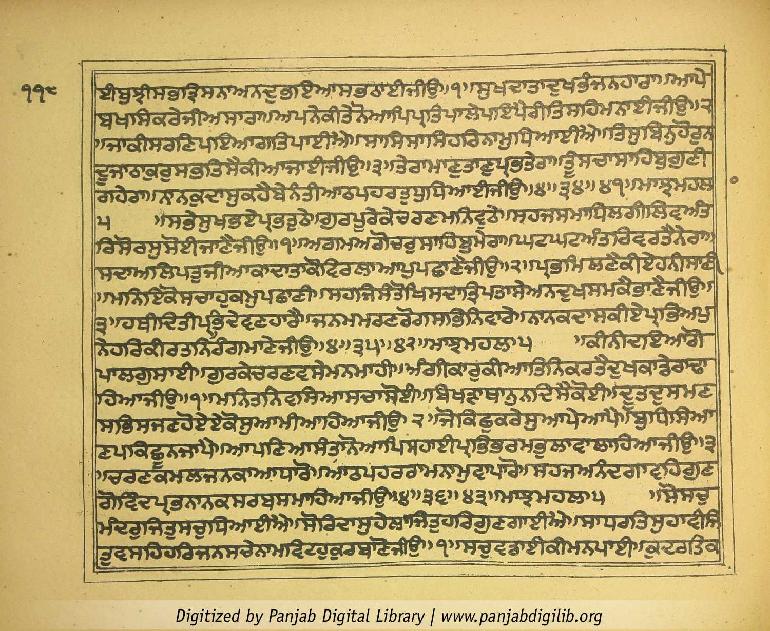 ੧੧੯
ਈਬੁਝੀਸਭਤ੍ਰਿਸਨਾਅਨਦੁਭਇਆਸਭਠਾਈਜੀਉ॥੧॥ਸੁਖਦਾਤਾਦੁਖਭੰਜਨਹਾਰਾ॥ਆਪੇ
ਬਖਸਿਕਰੇਜੀਅਸਾਰਾ॥ਅਪਨੇਕੀਤੇਨੋਆਪਿਪ੍ਰਤਿਪਾਲੇਪਇਪੈਰੀਤਿਸਹਿਮਨਾਈਜੀਉ॥੨
॥ਜਾਕੀਸਰਣਿਪਇਆਗਤਿਪਾਈਐ॥ਸਾਸਿਸਾਸਿਹਰਿਨਾਮੁਧਿਆਈਐ॥ਤਿਸੁਬਿਨੁਹੋਰੁਨ
ਦੂਜਾਠਾਕੁਰੁਸਭਤਿਸੈਕੀਆਜਾਈਜੀਉ॥੩॥ਤੇਰਾਮਾਣੁਤਾਣੁਪ੍ਰਭਤੇਰਾ॥ਤੂੰਸਚਾਸਾਹਿਬੁਗੁਣੀ
ਗਹੇਰਾ॥ਨਾਨਕੁਦਾਸੁਕਹੈਬੇਨੰਤੀਆਠਪਹਰਤੁਧੁਧਿਆਈਜੀਉ॥੪॥੩੪॥੪੧॥ਮਾਝਮਹਲਾ
੫ ॥ਸਭੇਸੁਖਭਏਪ੍ਰਭਤੁਠੇ॥ਗੁਰਪੂਰੇਕੇਚਰਣਮਨਿਵੁਠੇ॥ਸਹਜਸਮਾਧਿਲਗੀਲਿਵਅੰਤ
ਰਿਸੋਰਸੁਸੋਈਜਾਣੈਜੀਉ॥੧॥ਅਗਮਅਗੋਚਰੁਸਾਹਿਬੁਮੇਰਾ॥ਘਟਘਟਅੰਤਰਿਵਰਤੈਨੇਰਾ॥
ਸਦਾਅਲਿਪਤੁਜੀਆਕਾਦਾਤਾਕੋਵਿਰਲਾਆਪੁਪਛਾਣੈਜੀਉ॥੨॥ਪ੍ਰਭਮਿਲਣੈਕੀਏਹਨੀਸਾਣੀ
॥ਮਨਿਇਕੋਸਚਾਹੁਕਮੁਪਛਾਣੀ॥ਸਹਜਿਸੰਤੋਖਿਸਦਾਤ੍ਰਿਪਤਾਸੇਅਨਦੁਖਸਮਕੈਭਾਣੈਜੀਉ॥
੩॥ਹਥੀਦਿਤੀਪ੍ਰਭਿਦੇਵਣਹਾਰੈ॥ਜਨਮਮਰਣਰੋਗਸਭਿਨਿਵਾਰੇ॥ਨਾਨਕਦਾਸਕੀਏਪ੍ਰਭਿਅਪੁ
ਨੇਹਰਿਕੀਰਤਨਿਰੰਗਮਾਣੇਜੀਉ॥੪॥੩੫॥੪੨॥ਮਾਝਮਹਲਾ੫ ॥ਕੀਨੀਦਇਆਗੋ
ਪਾਲਗੁਸਾਈ॥ਗੁਰਕੇਚਰਣਵਸੇਮਨਮਾਹੀ॥ਅੰਗੀਕਾਰੁਕੀਆਤਿਨਿਕਰਤੈਦੁਖਕਾਡੇਰਾਢਾ
ਹਿਆਜੀਉ॥੧॥ਮਨਿਤਨਿਵਸਿਆਸਚਾਸੋਈ॥ਬਿਖੜਾਥਾਨੁਨਦਿਸੈਕੋਈ॥ਦੂਤਦੁਸਮਣ
ਸਭਿਸਜਣਹੋਏਏਕੋਸੁਆਮੀਆਹਿਆਜੀਉ॥੨॥ਜੋਕਿਛੁਕਰੇਸੁਆਪੇਆਪੈ॥ਬੁਧਿਸਿਆ
ਣਪਕਿਛੂਨਜਾਪੈ॥ਆਪਣਿਆਸੰਤਾਨੋਆਪਿਸਹਾਈਪ੍ਰਭਿਭਰਮਭੁਲਾਵਾਲਾਹਿਆਜੀਉ॥੩
॥ਚਰਣਕਮਲਜਨਕਾਆਧਾਰੋ॥ਆਠਪਹਰਰਾਮਨਾਮੁਵਾਪਾਰੋ॥ਸਹਜਅਨੰਦਗਾਵਹਿਗੁਣ
ਗੋਵਿੰਦਪ੍ਰਭਨਾਨਕਸਰਬਸਮਾਹਿਆਜੀਉ॥੪॥੩੬॥੪੩॥ਮਾਝਮਹਲਾ੫ ॥ਸੋਸਚੁ
ਮੰਦਰੁਜਿਤੁਸਚੁਧਿਆਈਐ॥ਸੋਰਿਦਾਸੁਹੇਲਾਜਿਤੁਹਰਿਗੁਣਗਾਈਐ॥ਸਾਧਰਤਿਸੁਹਾਵੀਜਿ
ਤੁਵਸਹਿਹਰਿਜਨਸਚੇਨਾਮਵਿਟਹੁਕੁਰਬਾਣੋਜੀਉ॥੧॥ਸਚੁਵਡਾਈਕੀਮਨਪਾਈ॥ਕੁਦਰਤਿਕ
Digitized by Panjab Digital Library | www.panjabdigilib.org